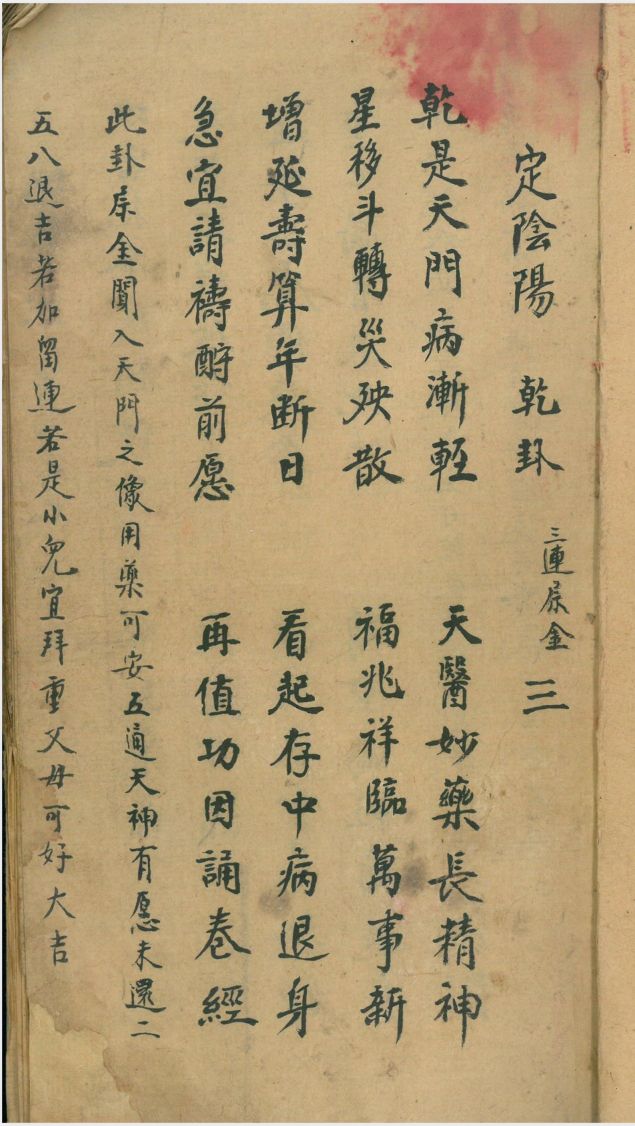 定陰陽 乾卦 三連屌金 ☰
乾是天門病漸輕 天醫妙藥長精神
星移斗轉災殃散 福兆祥臨萬事新
增延壽算年断日 看起存中病退身
急宜請禱酧前愿 再值功因誦卷經
此卦屌金闖入天門之像用藥可安五通天神有愿未還二
五八退吉若加留連若是小兒宜拜重父母可好大吉